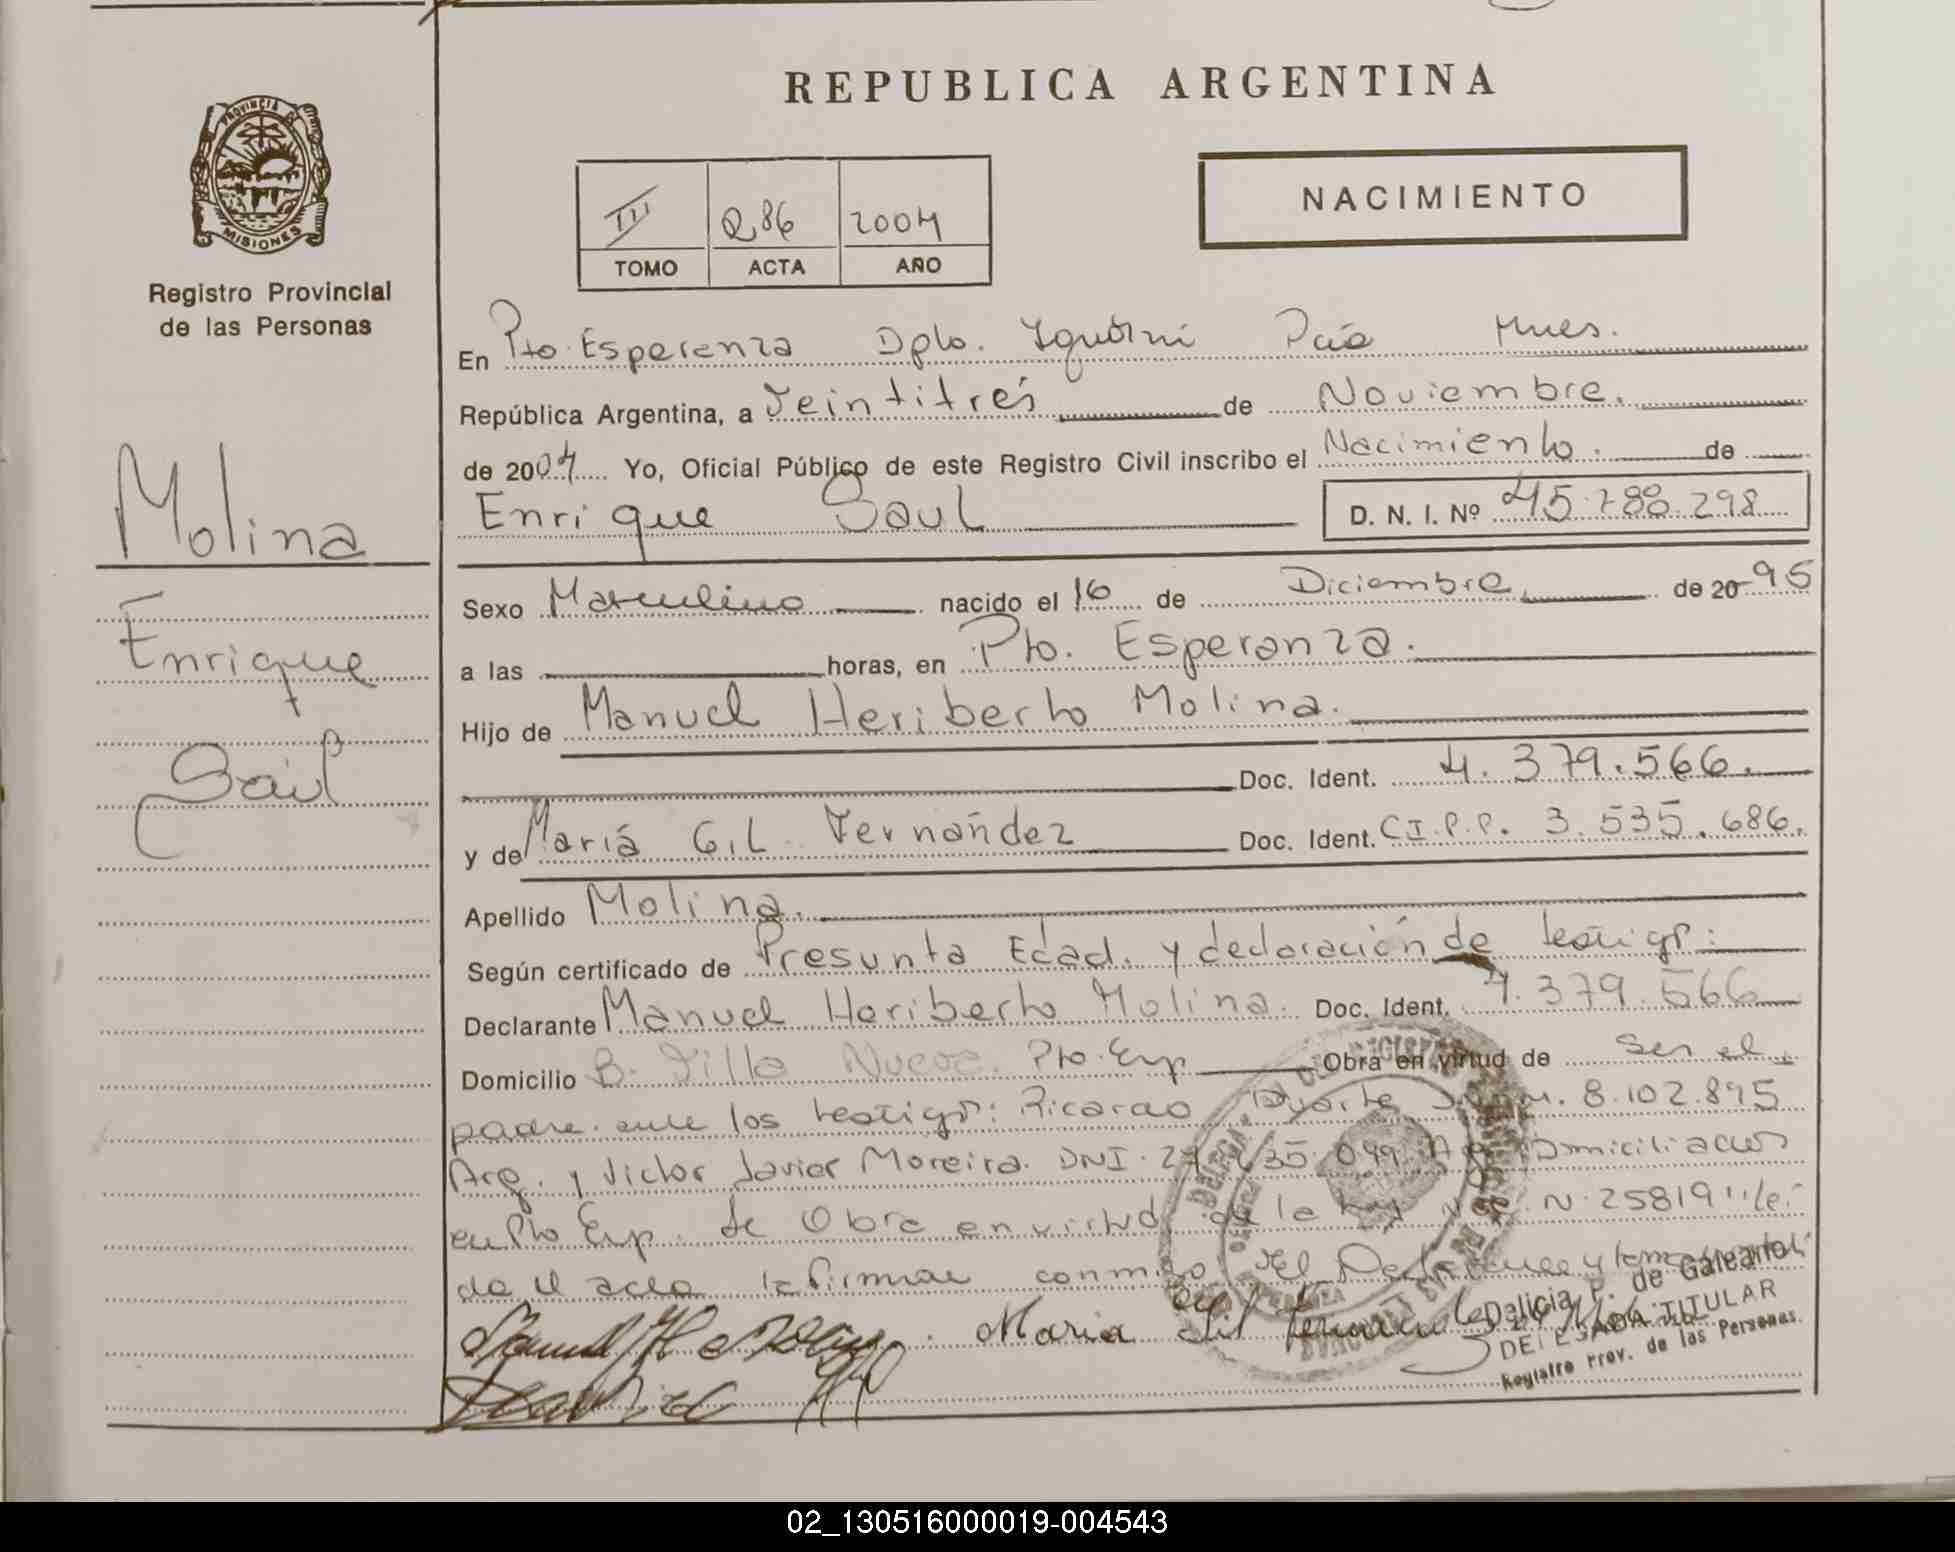 REPUBLICA ARGENTINA
PROVINCIA DE
MISIONES
Registro Provincial
de las Personas
NACIMIENTO
III 286 2004
TOMO ACTA AÑO
Molina
Enrique
Saúl
En Pto. Esperanza Dpto. Iguazú Pcia Mnes.
República Argentina, a Veintitrés de Noviembre.
de 2004 Yo, Oficial Público de este Registro Civil inscribo el Nacimiento. de
Enrique Saul D. N. I. Nº 45.788.298
Sexo Masculino nacido el 16 de Diciembre de 20 95
a las horas, en Pto. Esperanza.
Hijo de Manuel Heriberto Molina.
Doc. Ident. 4.379.566.
y de María Gil Fernández Doc. Ident. C.I.P.P. 3.535.686.
Apellido Molina.
Según certificado de Presunta Edad. y declaración de testigos:
Declarante Manuel Heriberto Molina. Doc. Ident. 4.379.566
Domicilio B. Villa Nueva. Pto. Esp Obra en virtud de Ser el
padre. ante los testigos: Ricardo Duarte 8.102.895
Arg. y Victor Javier Moreira. DNI. Domiciliados
en Pto Esp. Se Obra en virtud de la Ley N. 25819 "Lei
da el acta la firman conmigo El
Maria Gil
Dalicia P. de Galeano
DELEGADA TITULAR
Registro Prov. de las Personas.
02_130516000019-004543